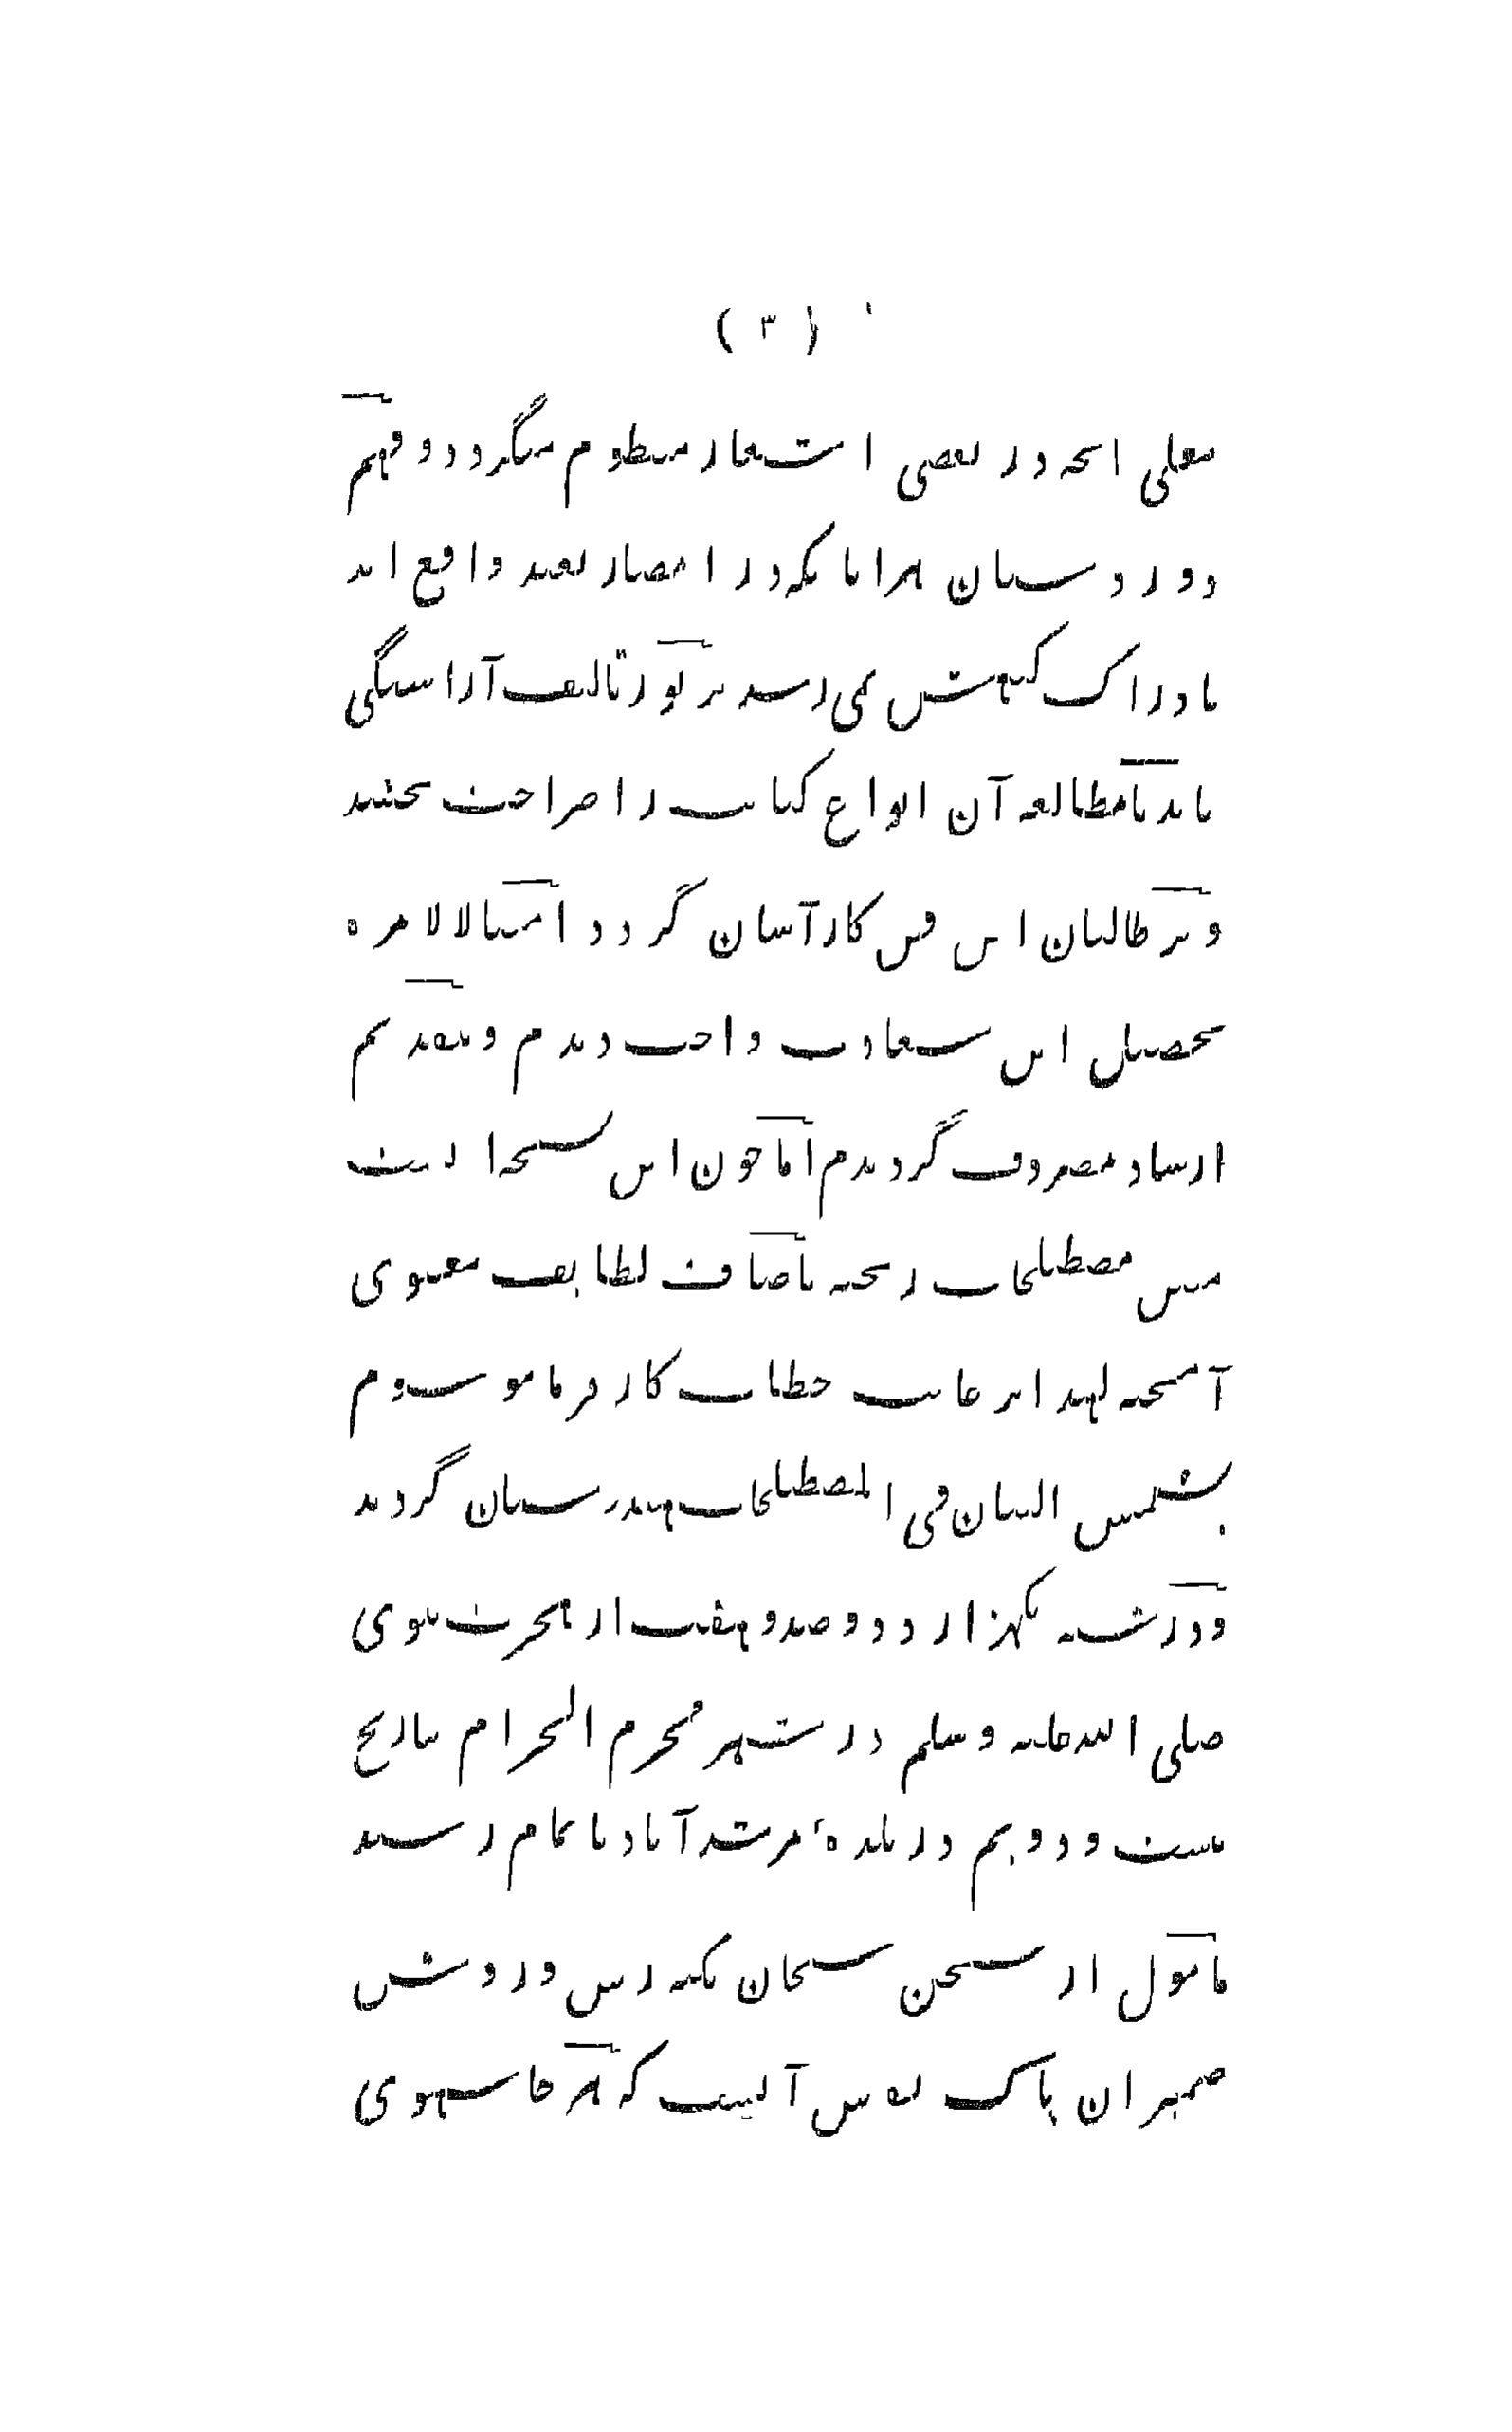 ( ۳ )
معلی انچه در بعضی اشعار منظوم میگردد و فهم
دور دستان هرانا نکه در امصار بعید واقع اند
بادراک کنهش نمی رسد بر تو ر تالیف آراستگی
یابد تا مطالعه آن انواع کنایت را صراحت بخشد
و بر طالبان این فن کار آسان گردد امتثالا لامره
تحصیل این سعادت واجب دیدم و بتقدیم
ارشاد مصروف گردیدم اما چون این نسخه ایست
مبین مصطلحات ریخته باضافت لطایف معنوی
آمیخته لهذا برعایت خطاب کار فرما موسوم
بشمس البیان فی المصطلحات هندوستان گردید
و در سنه یکهزار و دو صد و هفت از هجرت نبوی
صلی الله علیه و سلم در شهر محرم الحرام بتاریخ
بیست و دویم در بلدهٔ مرشدآباد باتمام رسید
مامول از سخن سنجان نکته رس و روشن
ضمیران پاک نفس آنست که هر جا سهوی